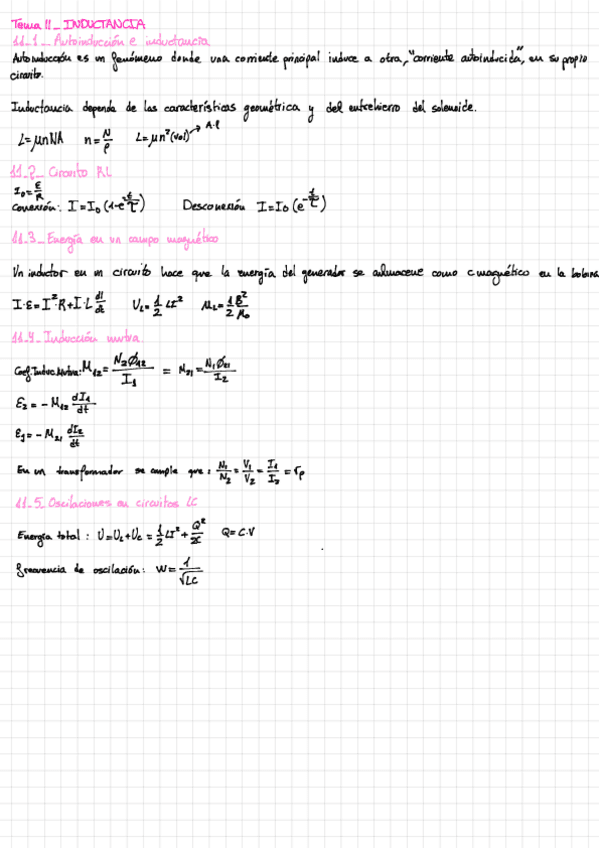 Tema 11_ INDUCTANCIA
11_1_ Autoinducción e inductancia
Autoinducción es un fenómeno donde una corriente principal induce a otra, "corriente autoinducida", en su propio
circuito.
Inductancia depende de las características geométrica y del entrehierro del solenoide.
L=μnNA n=N/ρ L=μn²(vol)→A·ℓ
11_2_ Circuito RL
I₀=ε/R
Conexión: I=I₀(1-e^-t/τ) Desconexión I=I₀(e^-t/τ)
11_3_ Energía en un campo magnético
Un inductor en un circuito hace que la energía del generador se almacene como c magnético en la bobina
I·ε=I²R+I·L dI/dt U_L=1/2 LI² μ_L=1/2 B²/μ₀
11_4_ Inducción mutua.
Coef. Induc. Mutua: M₁₂=N₂Ø₁₂/I₁ = M₂₁=N₁Ø₂₁/I₂
ε₂=-M₁₂ dI₁/dt
ε₁=-M₂₁ dI₂/dt
En un transformador se cumple que: N₁/N₂=V₁/V₂=I₁/I₂=rₚ
11_5_ Oscilaciones en circuitos LC
Energía total: U=U_L+U_C=1/2 LI²+Q²/2C Q=C·V
frecuencia de oscilación: W=1/√LC